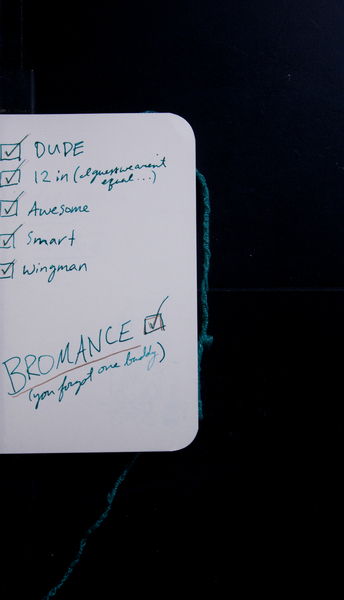 DUDE
12 in (I guess we aren't
equal...)
Awesome
Smart
Wingman
BROMANCE
(you forgot one buddy)